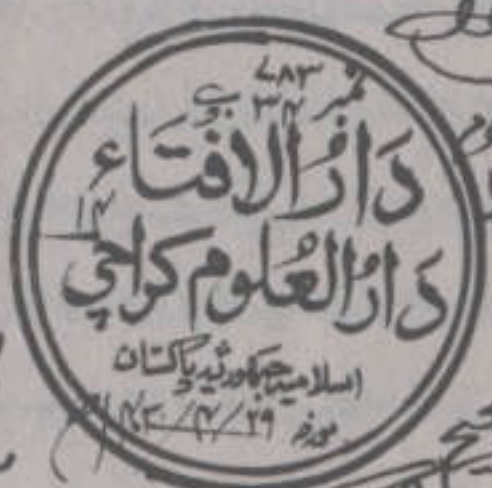 نمبر ۷۸۳
۳۴ ب
دَارُ الافتَاء
۱۴
دَارُ العُلوم کراچی
اسلامیہ جمہوریہ پاکستان
مورخہ ۲۹/۴/
صحیح